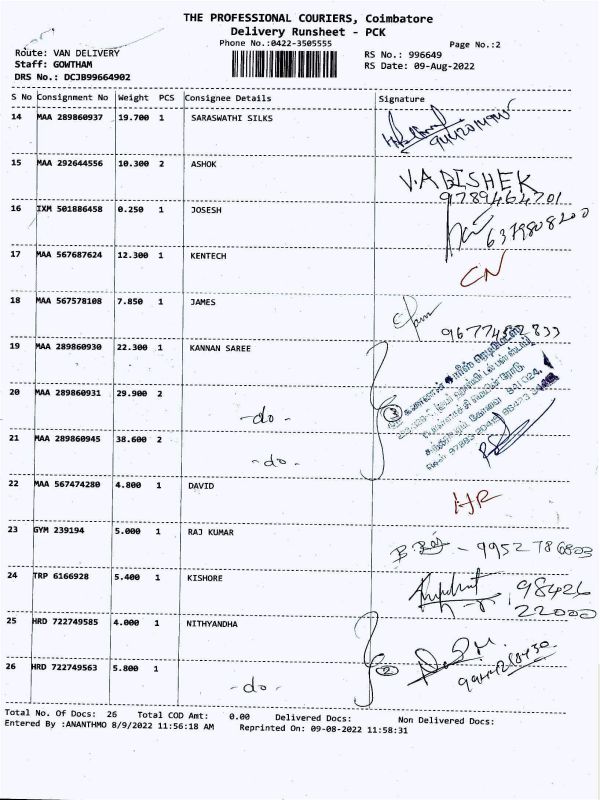 THE PROFESSIONAL COURIERS, Coimbatore
Delivery Runsheet - PCK
Phone No.:0422-3505555
Page No.:2
Route: VAN DELIVERY
Staff: GOWTHAM
DRS No.: DCJB99664902
RS No.: 996649
RS Date: 09-Aug-2022
S No Consignment No Weight PCS Consignee Details Signature
14 MAA 289860937 19.700 1 SARASWATHI SILKS
15 MAA 292644556 10.300 2 ASHOK V.ABISHEK
9789464701
16 IXM 501886458 0.250 1 JOSESH 6379808200
17 MAA 567687624 12.300 1 KENTECH CN
18 MAA 567578108 7.850 1 JAMES
19 MAA 289860930 22.300 1 KANNAN SAREE
20 MAA 289860931 29.900 2 -do- 3
21 MAA 289860945 38.600 2 -do-
22 MAA 567474280 4.800 1 DAVID HR
23 GYM 239194 5.000 1 RAJ KUMAR - 9952786803
24 TRP 6166928 5.400 1 KISHORE 98426
22000
25 HRD 722749585 4.000 1 NITHYANDHA
26 HRD 722749563 5.800 1 -do- 2
Total No. Of Docs: 26 Total COD Amt: 0.00 Delivered Docs: Non Delivered Docs:
Entered By :ANANTHMO 8/9/2022 11:56:18 AM Reprinted On: 09-08-2022 11:58:31